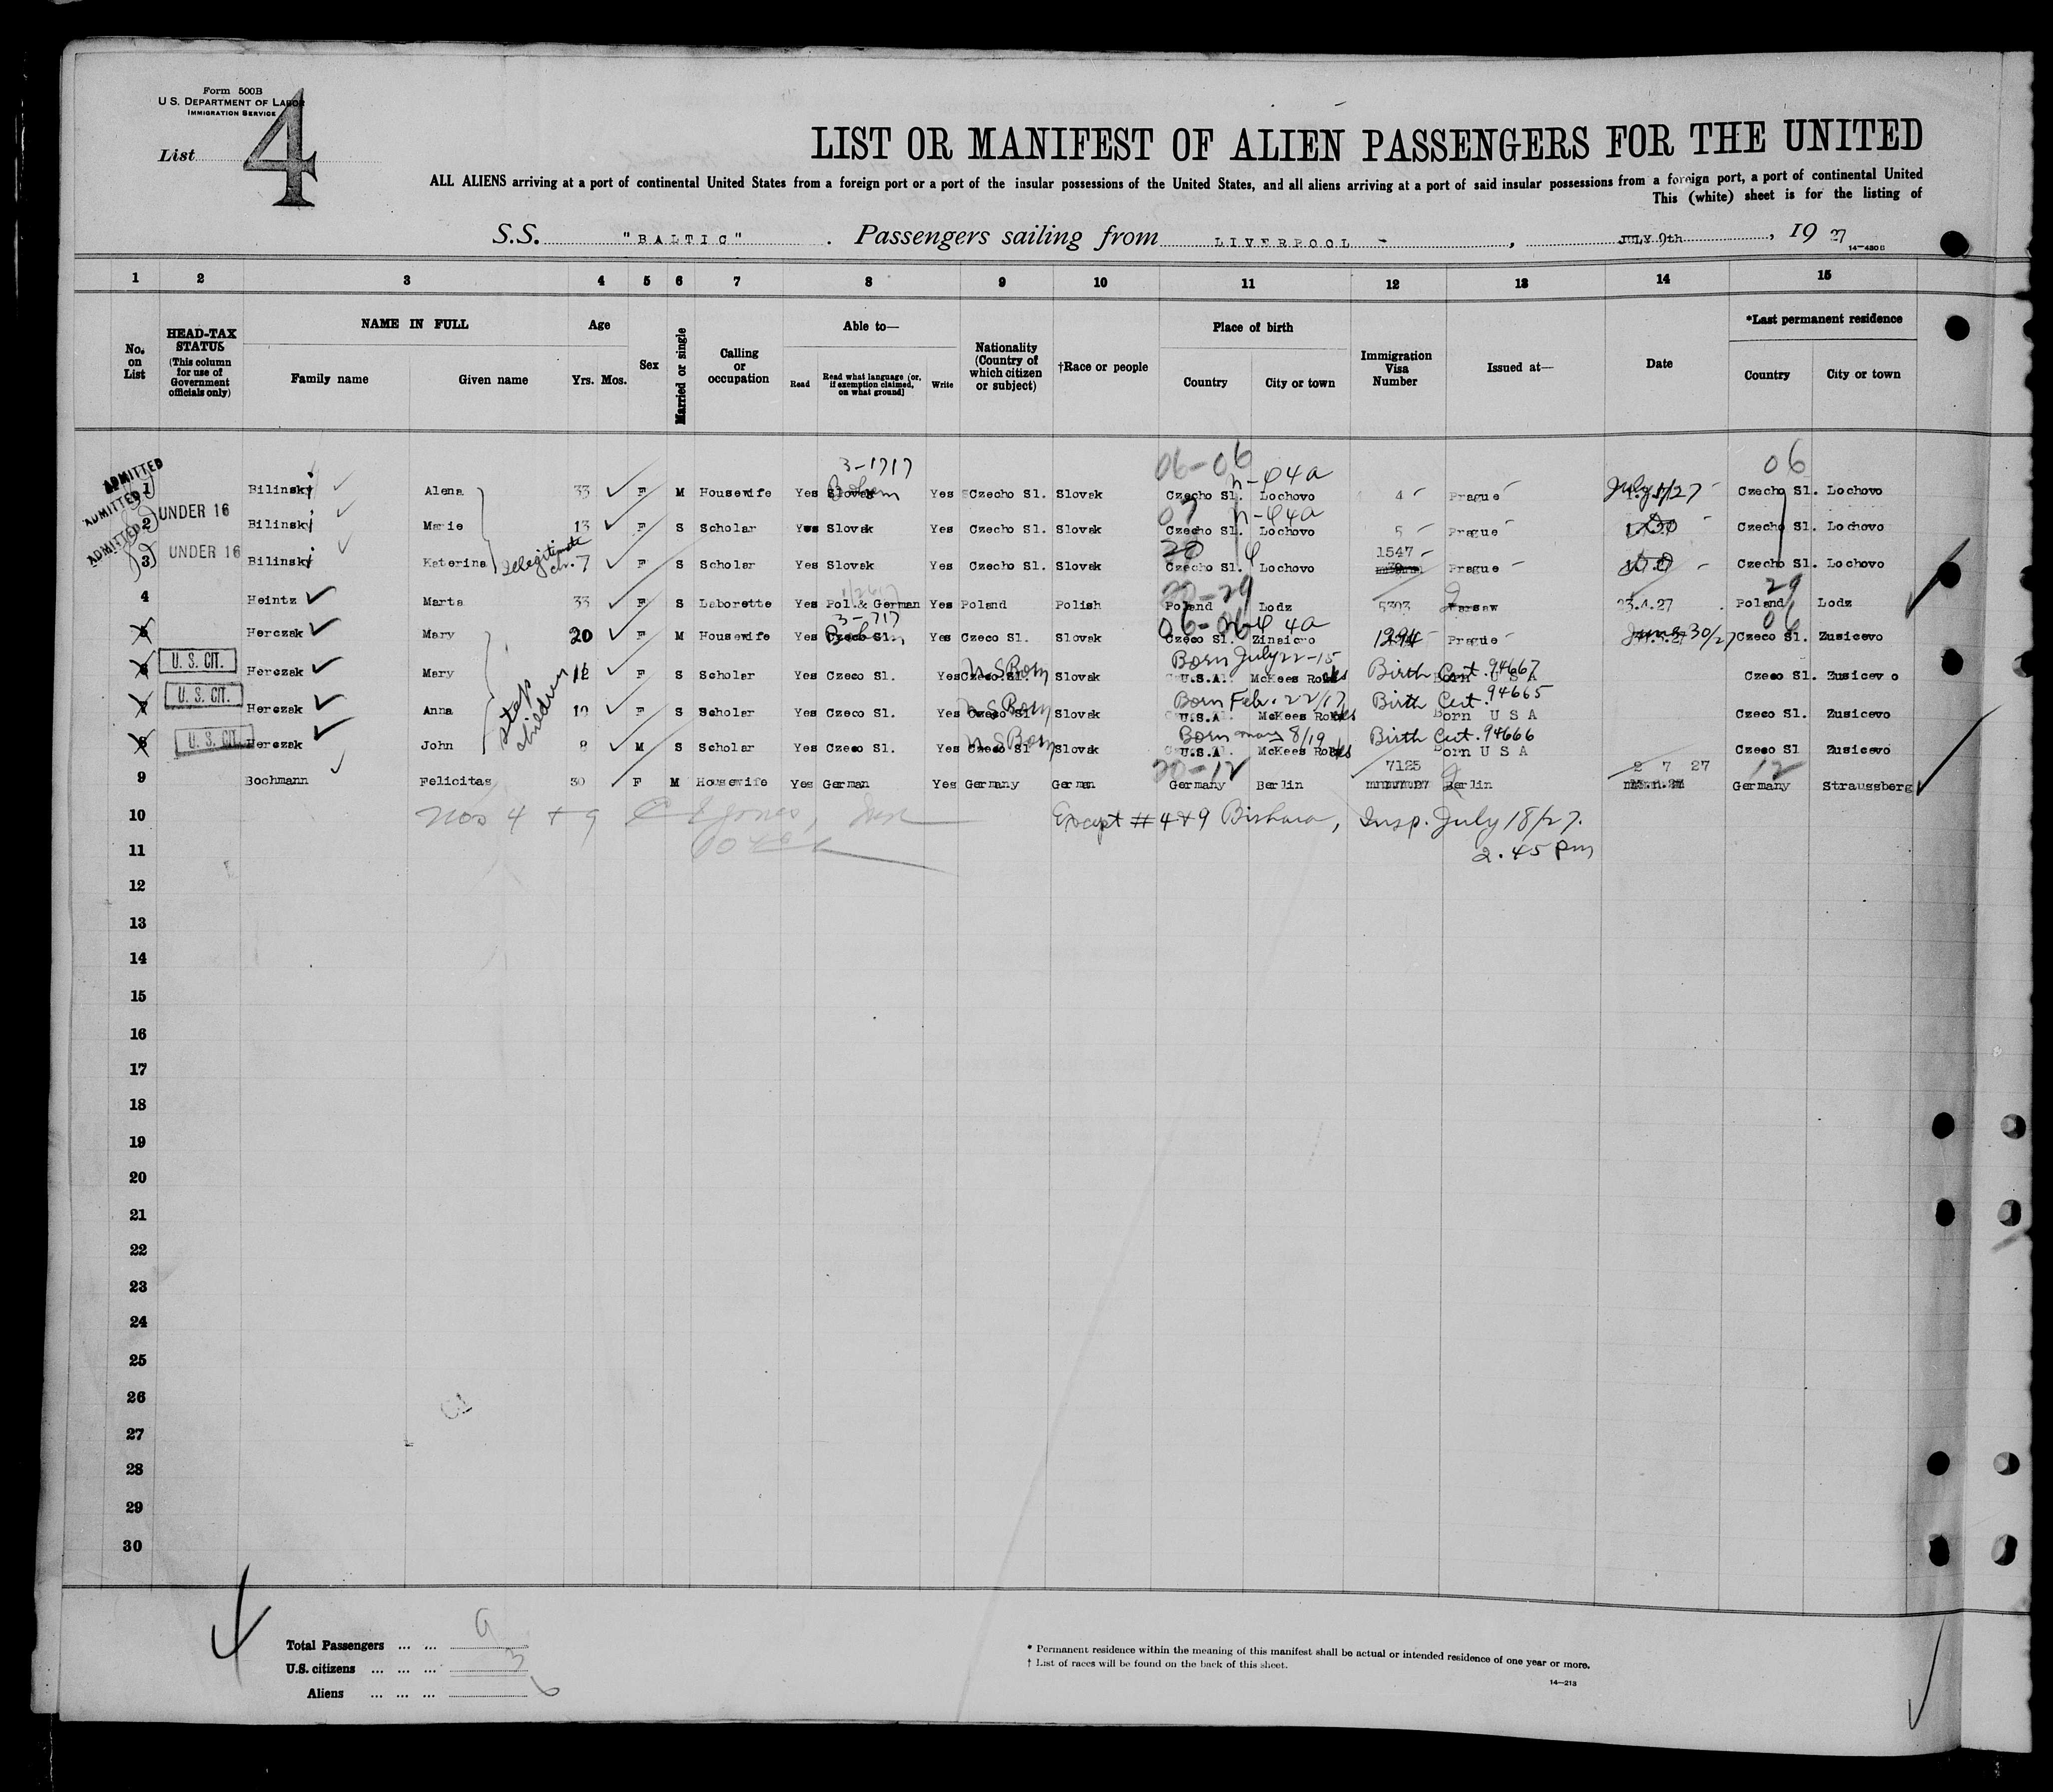 Form 500B
U. S. DEPARTMENT OF LABOR
IMMIGRATION SERVICE
List 4
LIST OR MANIFEST OF ALIEN PASSENGERS FOR THE UNITED
ALL ALIENS arriving at a port of continental United States from a foreign port or a port of the insular possessions of the United States, and all aliens arriving at a port of said insular possessions from a foreign port, a port of continental United
This (white) sheet is for the listing of
S.S. "BALTIC" . Passengers sailing from LIVERPOOL - , JULY 9th , 19 27
14-480 B
1 2 3 4 5 6 7 8 9 10 11 12 13 14 15
No. on List
HEAD-TAX STATUS (This column for use of Government officials only)
NAME IN FULL
Family name Given name
Age
Yrs. Mos.
Sex
Married or single
Calling or occupation
Able to—
Read
Read what language [or, if exemption claimed, on what ground]
Write
Nationality (Country of which citizen or subject)
†Race or people
Place of birth
Country City or town
Immigration Visa Number
Issued at—
Date
*Last permanent residence
Country City or town
3-1717 06-06 n-φ4a 06
ADMITTED 1 Bilinski Alena 33 F M Housewife Yes Slovak Yes Czecho Sl. Slovak Czecho Sl. Lochovo 4 Prague July 1/27 Czecho Sl. Lochovo
07 n-φ4a
ADMITTED 2 UNDER 16 Bilinski Marie 13 F S Scholar Yes Slovak Yes Czecho Sl. Slovak Czecho Sl. Lochovo 5 Prague Czecho Sl. Lochovo
1547
ADMITTED 3 UNDER 16 Bilinski Katerina 7 F S Scholar Yes Slovak Yes Czecho Sl. Slovak Czecho Sl. Lochovo Prague Czecho Sl. Lochovo
20-29 29
4 Heintz Marta 33 F S Laborette Yes Pol. & German Yes Poland Polish Poland Lodz 5303 Warsaw 23.4.27 Poland Lodz
3-717 06-06 n-φ 4a 06
5 Herczak Mary 20 F M Housewife Yes Czeco Sl. Yes Czeco Sl. Slovak Czeco Sl. Zinsicro 1294 Prague June 30/27 Czeco Sl. Zusicevo
step children
Born July 22-15 Birth Cert. 94667
6 U. S. CIT. Herczak Mary 12 F S Scholar Yes Czeco Sl. Yes Czeco Sl. U S Born Slovak U.S.A. McKees Rocks Born U S A Czeco Sl. Zusicevo
Born Feb. 22/17 Birth Cert. 94665
7 U. S. CIT. Herczak Anna 10 F S Scholar Yes Czeco Sl. Yes Czeco Sl U S Born Slovak U.S.A McKees Rocks Born U S A Czeco Sl. Zusicevo
Born 8/19 Birth Cert. 94666
8 U. S. CIT. Herczak John 8 M S Scholar Yes Czeco Sl. Yes Czeco Sl U S Born Slovak U.S.A McKees Rocks Born U S A Czeco Sl Zusicevo
20-12 7125 2 7 27 12
9 Bochmann Felicitas 30 F M Housewife Yes German Yes Germany German Germany Berlin Berlin Germany Straussberg
10 Nos 4 + 9 Jones, Except # 4+9 Bishara, Insp. July 18/27.
11 2.45 pm
12
13
14
15
16
17
18
19
20
21
22
23
24
25
26
27
28
29
30
Total Passengers ... ... 9
U.S. citizens ... ... ... 3
Aliens ... ... ... 6
* Permanent residence within the meaning of this manifest shall be actual or intended residence of one year or more.
† List of races will be found on the back of this sheet.
14-213